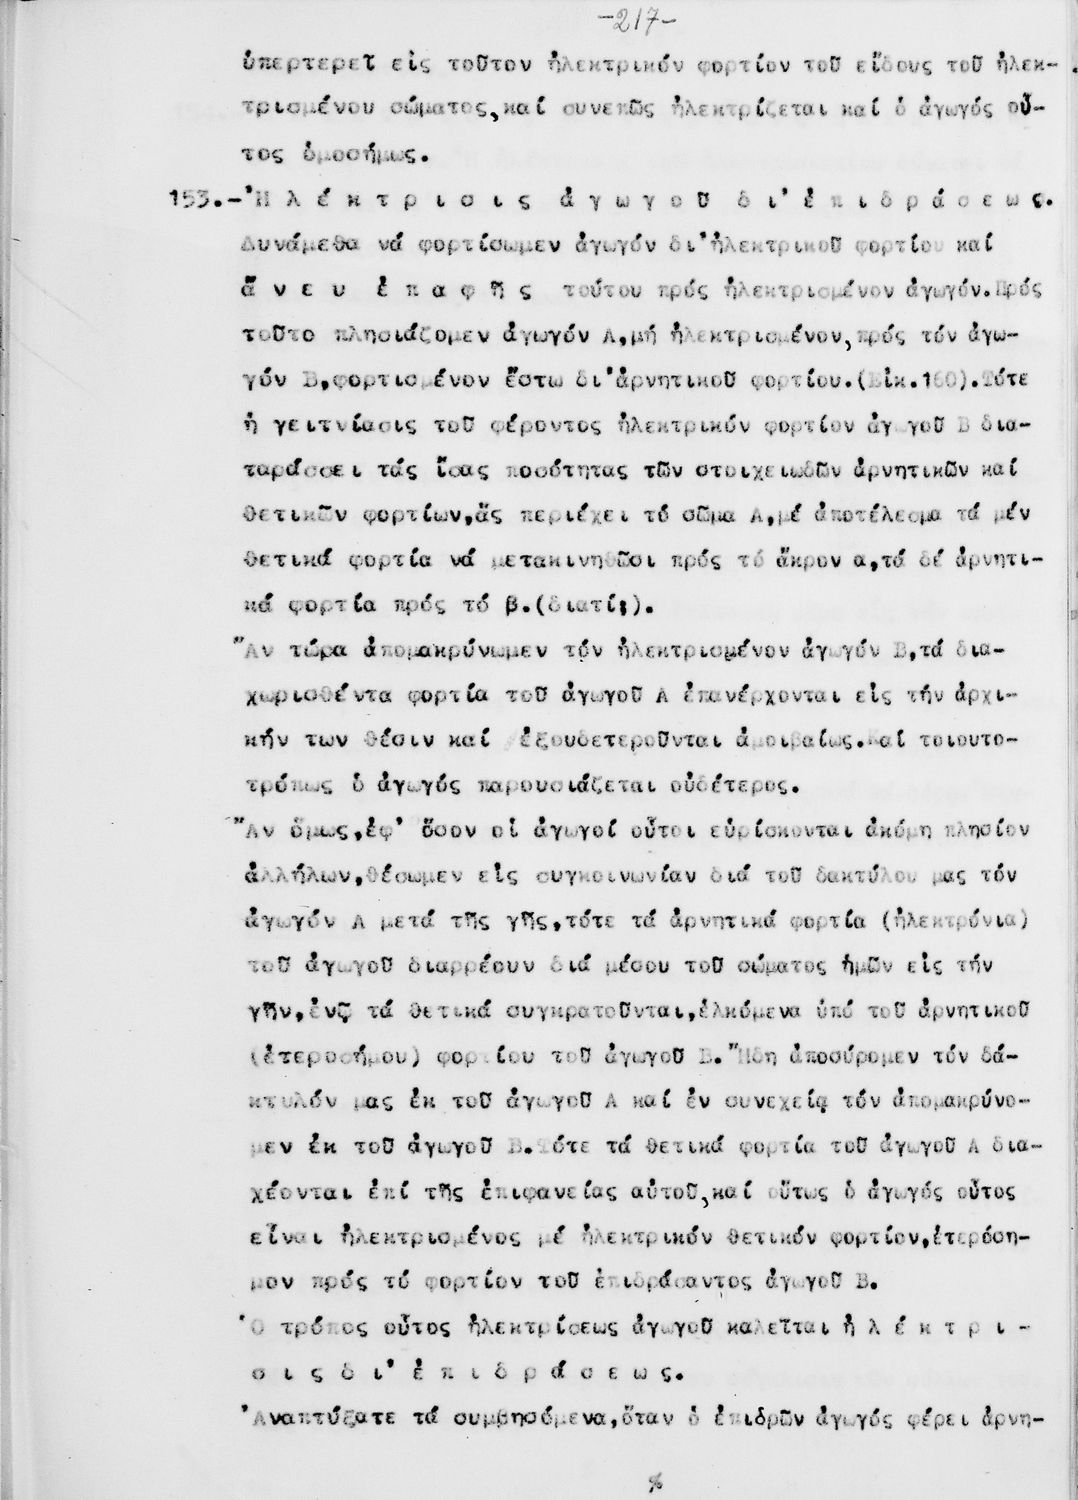 -217-
ὑπερτερεῖ εἰς τοῦτον ἠλεκτρικόν φορτίον τοῦ εἴδους τοῦ ἠλεκ-
τρισμένου σώματος, καί συνεπῶς ἠλεκτρίζεται καί ὁ ἀγωγός οὗ-
τος ὁμοσήμως.
153.-Ἠ λ έ κ τ ρ ι σ ι ς ἀ γ ω γ ο ῦ δ ι' ἐ π ι δ ρ ά σ ε ω ς.
Δυνάμεθα νά φορτίσωμεν ἀγωγόν δι'ἠλεκτρικοῦ φορτίου καί
ἄ ν ε υ ἐ π α φ ῆ ς τούτου πρός ἠλεκτρισμένον ἀγωγόν.Πρός
τοῦτο πλησιάζομεν ἀγωγόν Α,μή ἠλεκτρισμένον, πρός τόν ἀγω-
γόν Β,φορτισμένον ἔστω δι'ἀρνητικοῦ φορτίου.(Εἰκ.160).Τότε
ἡ γειτνίασις τοῦ φέροντος ἠλεκτρικόν φορτίον ἀγωγοῦ Β δια-
ταράσσει τάς ἴσας ποσότητας τῶν στοιχειωδῶν ἀρνητικῶν καί
θετικῶν φορτίων,ἅς περιέχει τό σῶμα Α,μέ ἀποτέλεσμα τά μέν
θετικά φορτία νά μετακινηθῶσι πρός τό ἄκρον α,τά δέ ἀρνητι-
κά φορτία πρός τό β.(διατί;).
Ἄν τώρα ἀπομακρύνωμεν τόν ἠλεκτρισμένον ἀγωγόν Β,τά δια-
χωρισθέντα φορτία τοῦ ἀγωγοῦ Α ἐπανέρχονται εἰς τήν ἀρχι-
κήν των θέσιν καί ἐξουδετεροῦνται ἀμοιβαίως.Καί τοιουτο-
τρόπως ὁ ἀγωγός παρουσιάζεται οὐδέτερος.
Ἄν ὅμως,ἐφ' ὅσον οἱ ἀγωγοί οὗτοι εὑρίσκονται ἀκόμη πλησίον
ἀλλήλων,θέσωμεν εἰς συγκοινωνίαν διά τοῦ δακτύλου μας τόν
ἀγωγόν Α μετά τῆς γῆς,τότε τά ἀρνητικά φορτία (ἠλεκτρόνια)
τοῦ ἀγωγοῦ διαρρέουν διά μέσου τοῦ σώματος ἡμῶν εἰς τήν
γῆν,ἐνῷ τά θετικά συγκρατοῦνται,ἑλκόμενα ὑπό τοῦ ἀρνητικοῦ
(ἑτεροσήμου) φορτίου τοῦ ἀγωγοῦ Β.Ἤδη ἀποσύρομεν τόν δά-
κτυλόν μας ἐκ τοῦ ἀγωγοῦ Α καί ἐν συνεχείᾳ τόν ἀπομακρύνο-
μεν ἐκ τοῦ ἀγωγοῦ Β.Τότε τά θετικά φορτία τοῦ ἀγωγοῦ Α δια-
χέονται ἐπί τῆς ἐπιφανείας αὐτοῦ, καί οὕτως ὁ ἀγωγός οὗτος
εἶναι ἠλεκτρισμένος μέ ἠλεκτρικόν θετικόν φορτίον,ἑτερόση-
μον πρός τό φορτίον τοῦ ἐπιδράσαντος ἀγωγοῦ Β.
Ὁ τρόπος οὗτος ἠλεκτρίσεως ἀγωγοῦ καλεῖται ἠ λ έ κ τ ρ ι -
σ ι ς δ ι' ἐ π ι δ ρ ά σ ε ω ς.
Ἀναπτύξατε τά συμβησόμενα,ὅταν ὁ ἐπιδρῶν ἀγωγός φέρει ἀρνη-
%